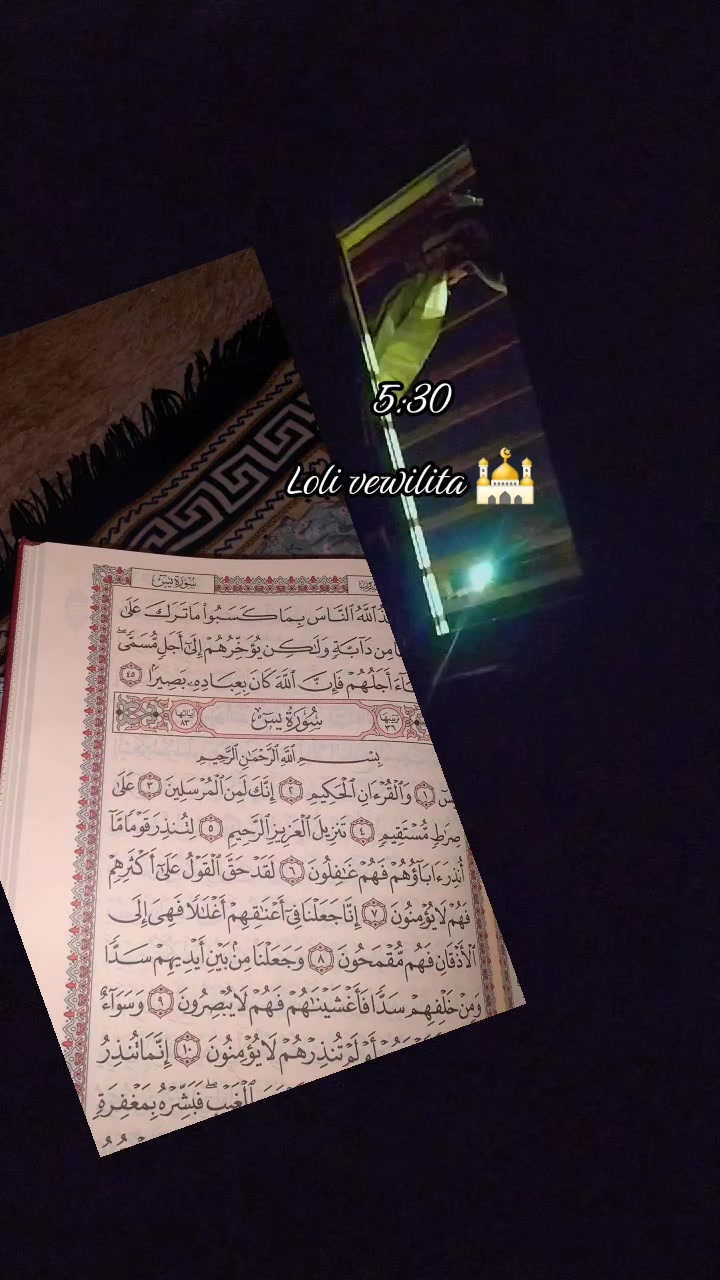 5:30
Loli vewilita
سُورَةُ يسٓ
ٱللَّهُ ٱلنَّاسَ بِمَا كَسَبُوا۟ مَا تَرَكَ عَلَىٰ
مِن دَآبَّةٍ وَلَٰكِن يُؤَخِّرُهُمْ إِلَىٰٓ أَجَلٍ مُّسَمًّى ۖ
أَجَلُهُمْ فَإِنَّ ٱللَّهَ كَانَ بِعِبَادِهِۦ بَصِيرًۢا ٤٥
ترتيبها ٣٦ سُورَةُ يسٓ آياتها ٨٣
بِسْمِ ٱللَّهِ ٱلرَّحْمَٰنِ ٱلرَّحِيمِ
يسٓ ١ وَٱلْقُرْءَانِ ٱلْحَكِيمِ ٢ إِنَّكَ لَمِنَ ٱلْمُرْسَلِينَ ٣ عَلَىٰ
صِرَٰطٍ مُّسْتَقِيمٍ ٤ تَنزِيلَ ٱلْعَزِيزِ ٱلرَّحِيمِ ٥ لِتُنذِرَ قَوْمًا مَّآ
أُنذِرَ ءَابَآؤُهُمْ فَهُمْ غَٰفِلُونَ ٦ لَقَدْ حَقَّ ٱلْقَوْلُ عَلَىٰٓ أَكْثَرِهِمْ
فَهُمْ لَا يُؤْمِنُونَ ٧ إِنَّا جَعَلْنَا فِىٓ أَعْنَٰقِهِمْ أَغْلَٰلًا فَهِىَ إِلَى
ٱلْأَذْقَانِ فَهُم مُّقْمَحُونَ ٨ وَجَعَلْنَا مِنۢ بَيْنِ أَيْدِيهِمْ سَدًّا
وَمِنْ خَلْفِهِمْ سَدًّا فَأَغْشَيْنَٰهُمْ فَهُمْ لَا يُبْصِرُونَ ٩ وَسَوَآءٌ
أَمْ لَمْ تُنذِرْهُمْ لَا يُؤْمِنُونَ ١٠ إِنَّمَا تُنذِرُ
ٱلْغَيْبِ ۖ فَبَشِّرْهُ بِمَغْفِرَةٍ